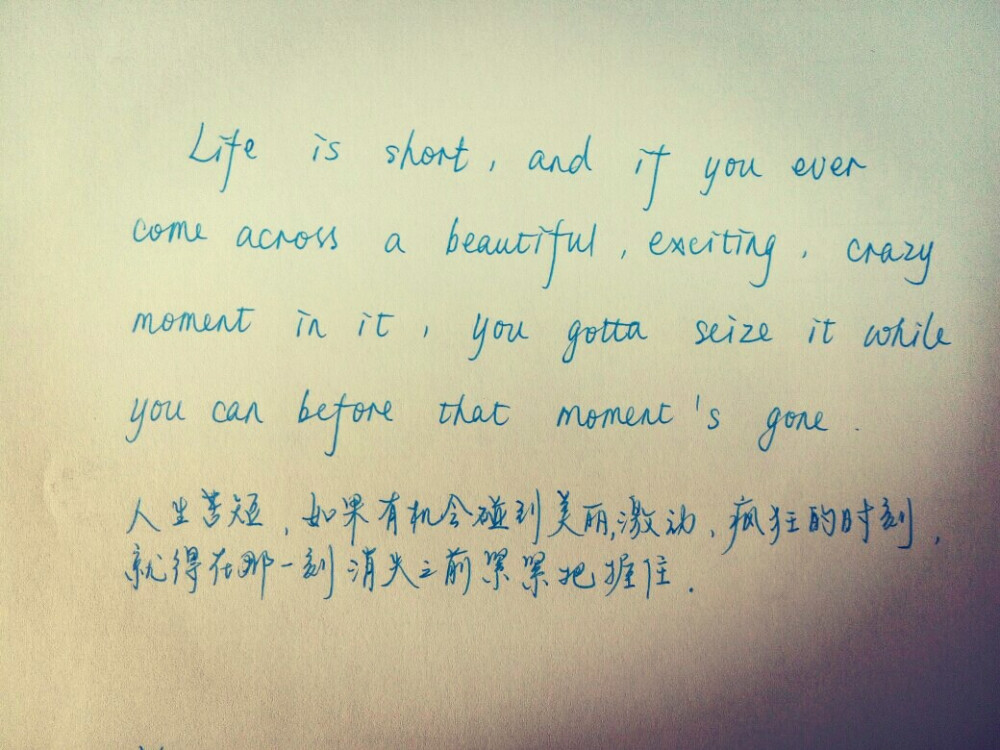 Life is short, and if you ever
come across a beautiful, exciting, crazy
moment in it, you gotta seize it while
you can before that moment's gone.
人生苦短,如果有机会碰到美丽,激动,疯狂的时刻,
就得在那一刻消失之前紧紧把握住.